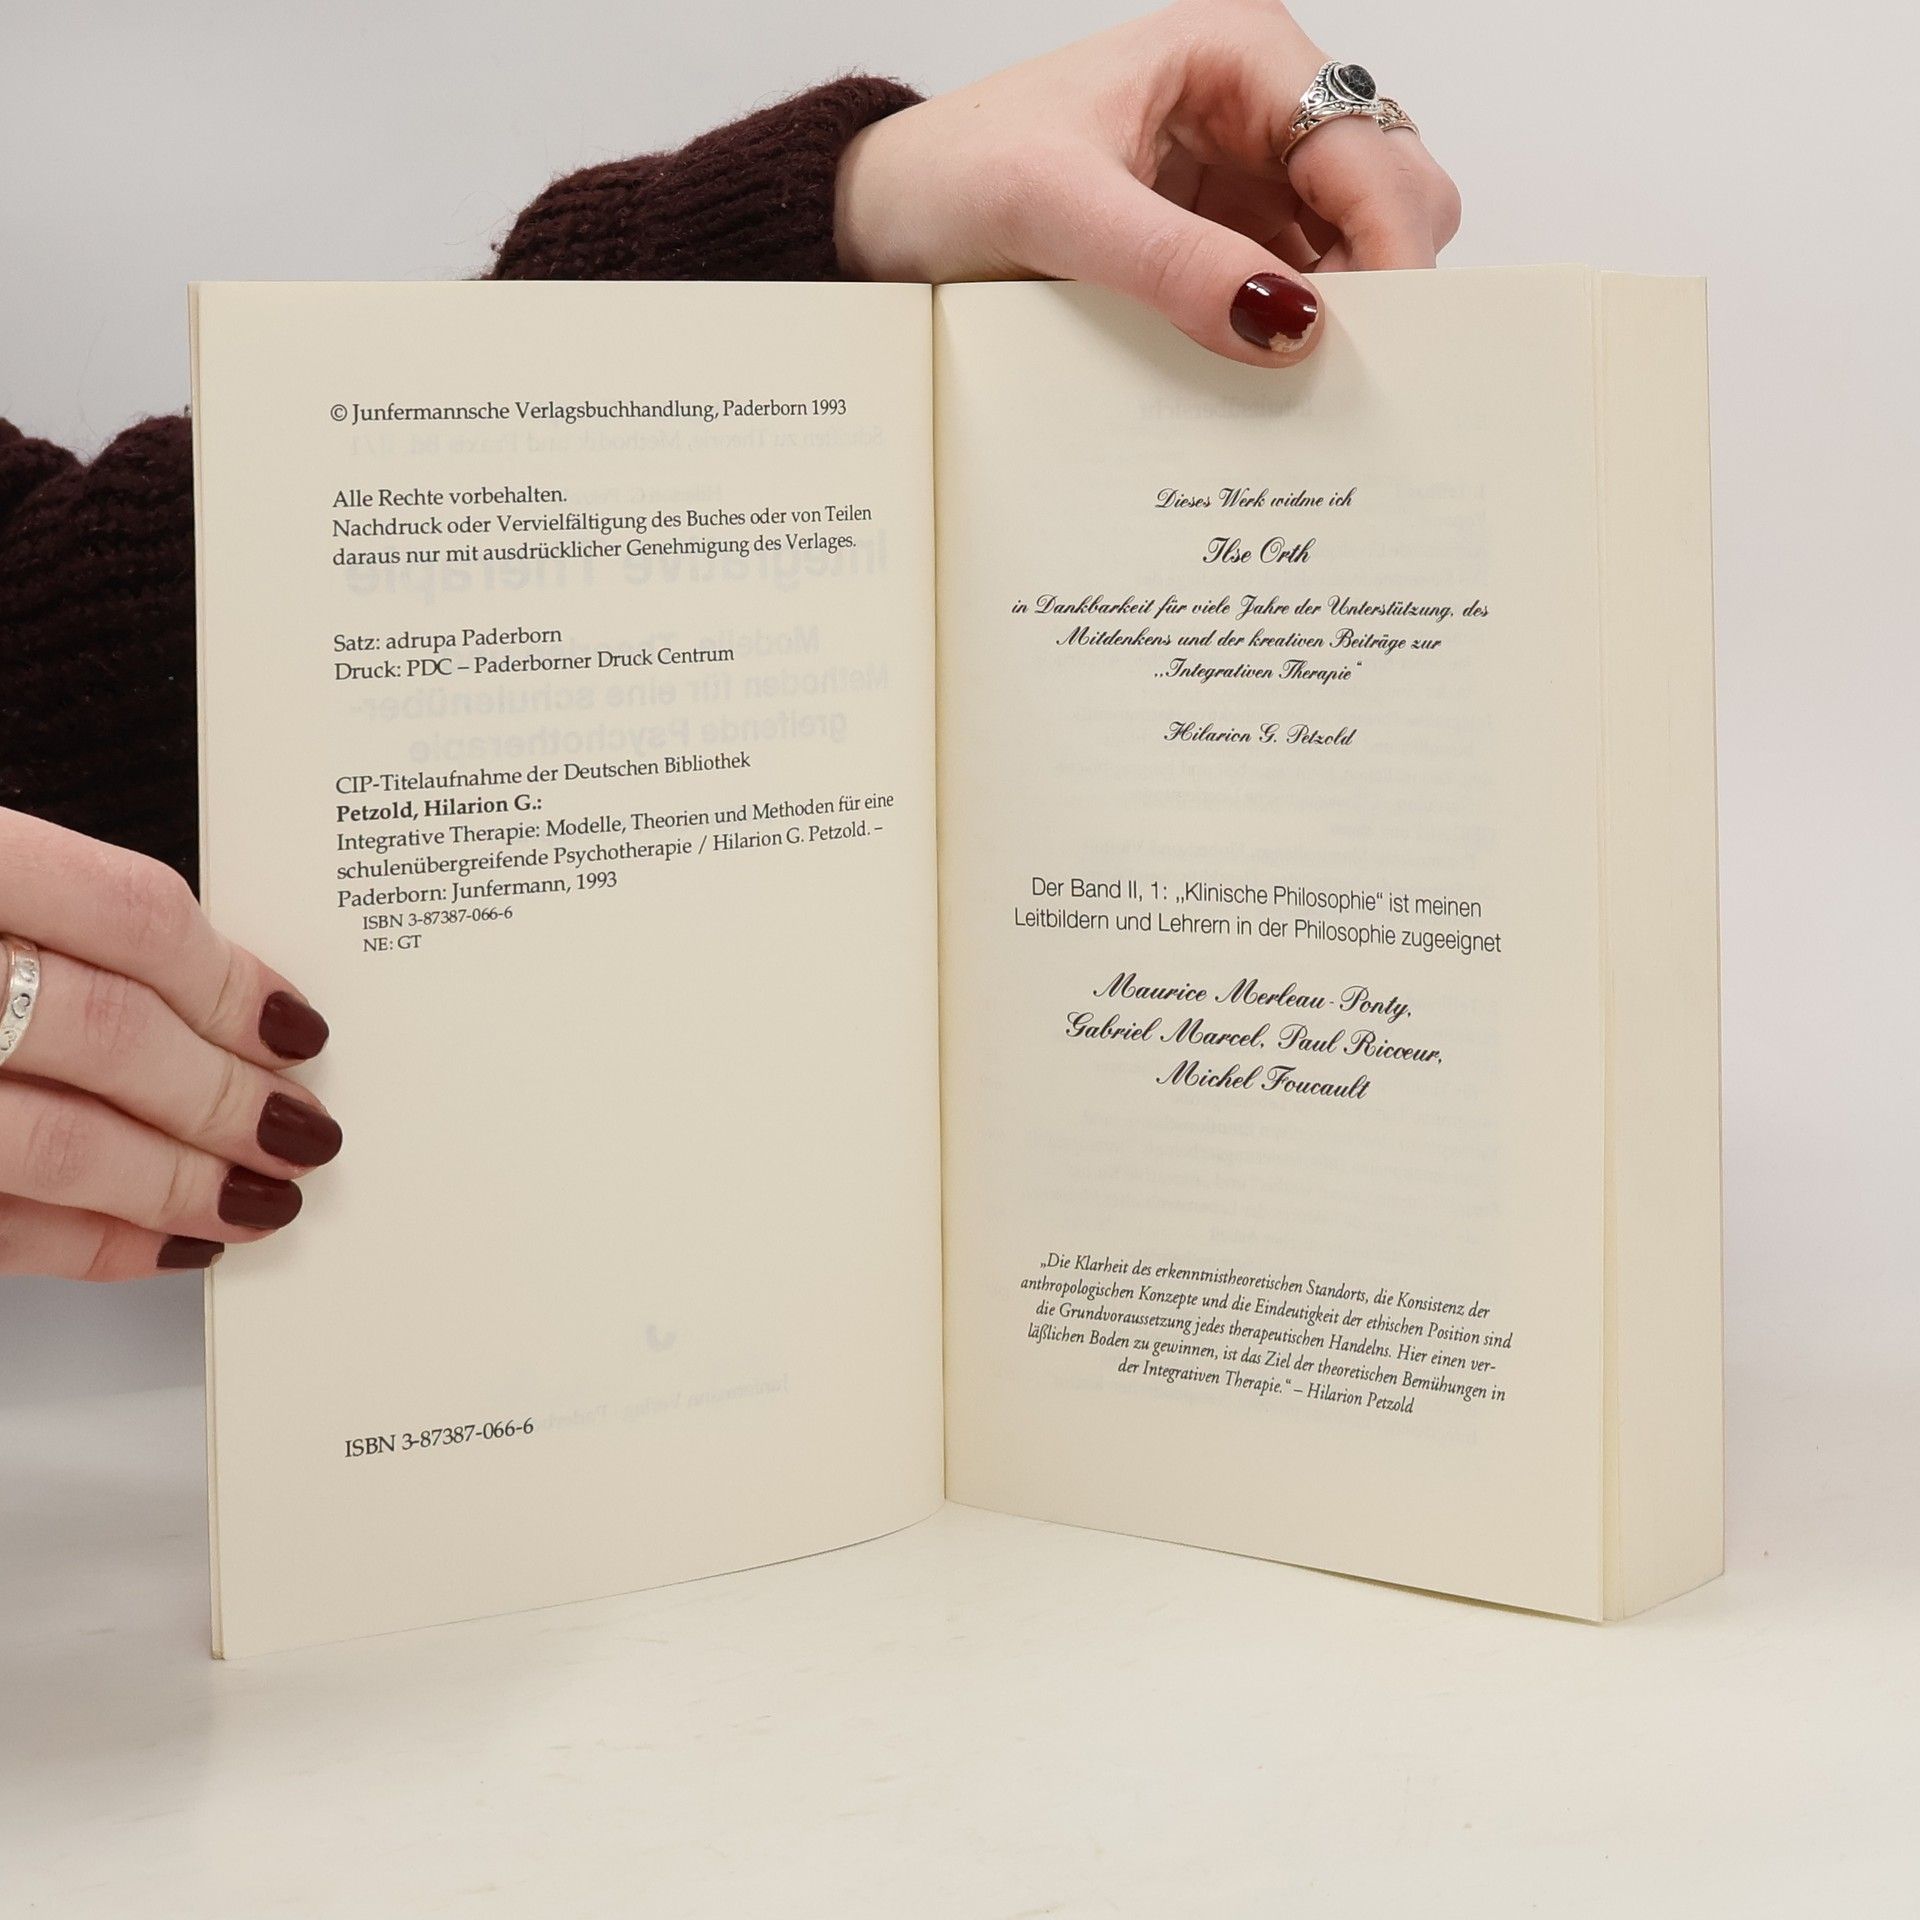 © Junfermannsche Verlagsbuchhandlung, Paderborn 1993
Alle Rechte vorbehalten.
Nachdruck oder Vervielfältigung des Buches oder von Teilen
daraus nur mit ausdrücklicher Genehmigung des Verlages.
Satz: adrupa Paderborn
Druck: PDC – Paderborner Druck Centrum
CIP-Titelaufnahme der Deutschen Bibliothek
Petzold, Hilarion G.:
Integrative Therapie: Modelle, Theorien und Methoden für eine
schulenübergreifende Psychotherapie / Hilarion G. Petzold. –
Paderborn: Junfermann, 1993
ISBN 3-87387-066-6
NE: GT
ISBN 3-87387-066-6
Dieses Werk widme ich
Ilse Orth
in Dankbarkeit für viele Jahre der Unterstützung, des
Mitdenkens und der kreativen Beiträge zur
„Integrativen Therapie“
Hilarion G. Petzold
Der Band II, 1: „Klinische Philosophie“ ist meinen
Leitbildern und Lehrern in der Philosophie zugeeignet
Maurice Merleau-Ponty,
Gabriel Marcel, Paul Ricœur,
Michel Foucault
„Die Klarheit des erkenntnistheoretischen Standorts, die Konsistenz der
anthropologischen Konzepte und die Eindeutigkeit der ethischen Position sind
die Grundvoraussetzung jedes therapeutischen Handelns. Hier einen ver-
läßlichen Boden zu gewinnen, ist das Ziel der theoretischen Bemühungen in
der Integrativen Therapie.“ – Hilarion Petzold